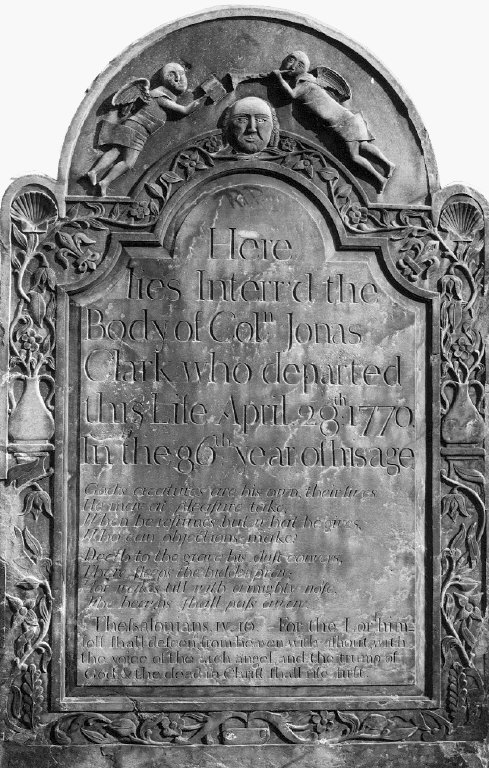 Here
lies Interr'd the
Body of Colⁿ Jonas
Clark who departed
this Life April 28th 1770
In the 86th year of his age
God's creatures are his own, their lives
He may at pleasure take,
When he resumes but what he gives,
Who can objections make?
to the grave his dust
sleeps the
till with a mighty
he shall
Thessalonians. IV. 16 For the Lord him-
self shall descend from heaven with a shout, with
the voice of the arch angel, and the trump of
God & the dead in Christ shall rise first.